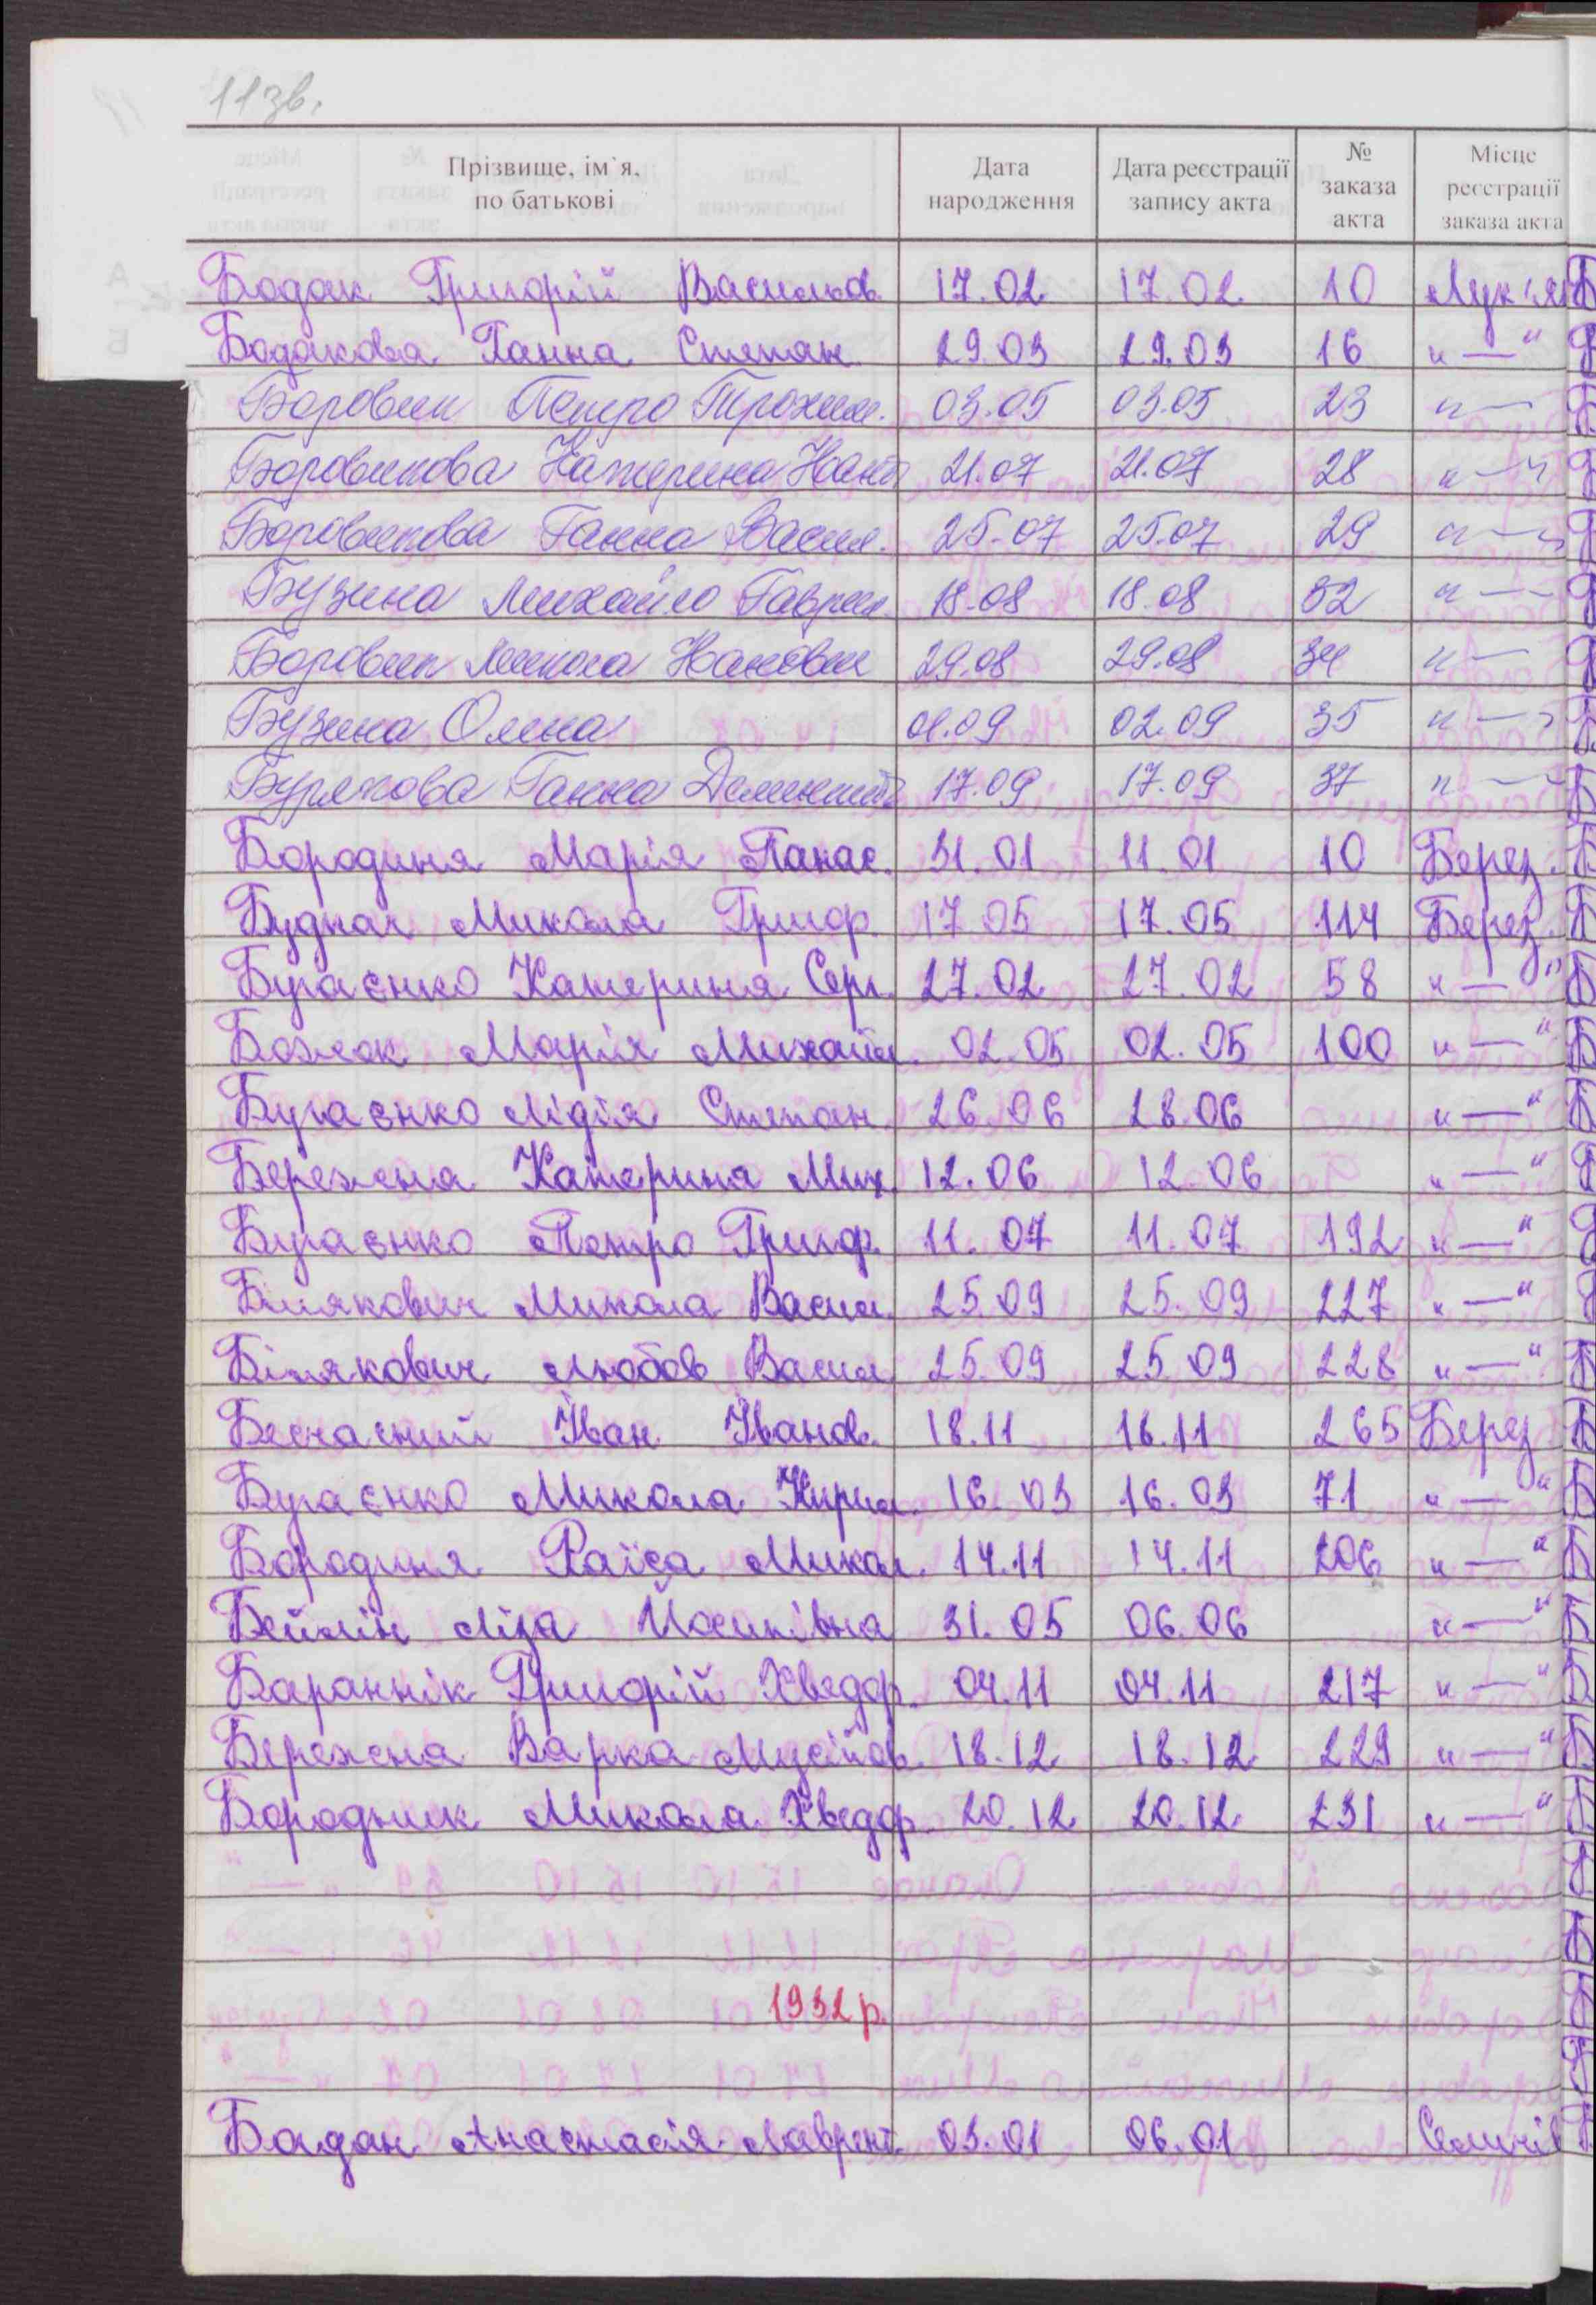 11зв.
Прізвище, ім`я, по батькові | Дата народження | Дата реєстрації запису акта | № заказа акта | Місце реєстрації заказа акта
Бодак Григорій Васильов. 17.02 17.02 10 Лук'я
Бодакова Ганна Степан 29.03 29.03 16 "—"
Боровик Петро Трохим. 03.05 03.05 23 "—
Боровикова Катерина Іван 21.07 21.07 28 "—"
Боровикова Ганна Васил. 25.07 25.07 29 "—"
Бузина Михайло Гаврил. 18.08 18.08 32 "—
Боровик Микола Іванович 29.08 29.08 34 "—
Бузина Олена 01.09 02.09 35 "—"
Бурякова Ганна Демент 17.09 17.09 37 "—
Бородиня Марія Панас. 31.01 11.01 10 Берез.
Будкач Микола Григор. 17.05 17.05 114 Берез.
Бугаєнко Катериня Серг. 27.02 27.02 58 "—"
Божок Марія Михайл. 02.05 02.05 100 "—"
Бугаєнко Лідія Степан. 26.06 28.06 "—"
Бережена Катериня Мих. 12.06 12.06 "—"
Бугаєнко Петро Григор. 11.07 11.07 192 "—"
Білякович Микола Васил. 25.09 25.09 227 "—"
Білякович Любов Васил. 25.09 25.09 228 "—"
Бесчасний Іван Іванов. 18.11 18.11 265 Берез
Бугаєнко Микола Кирил. 16.03 16.03 71 "—"
Бородиня Раїса Микол. 14.11 14.11 206 "—"
Бейлін Ліза Йосипівна 31.05 06.06 "—"
Бараннік Григорій Хведор. 04.11 04.11 217 "—"
Бережена Варка Мусійов. 18.12 18.12 229 "—"
Бородник Микола Хведор. 20.12 20.12 231 "—"
1932 р.
Богдан Анастасія Лаврент. 03.01 06.01